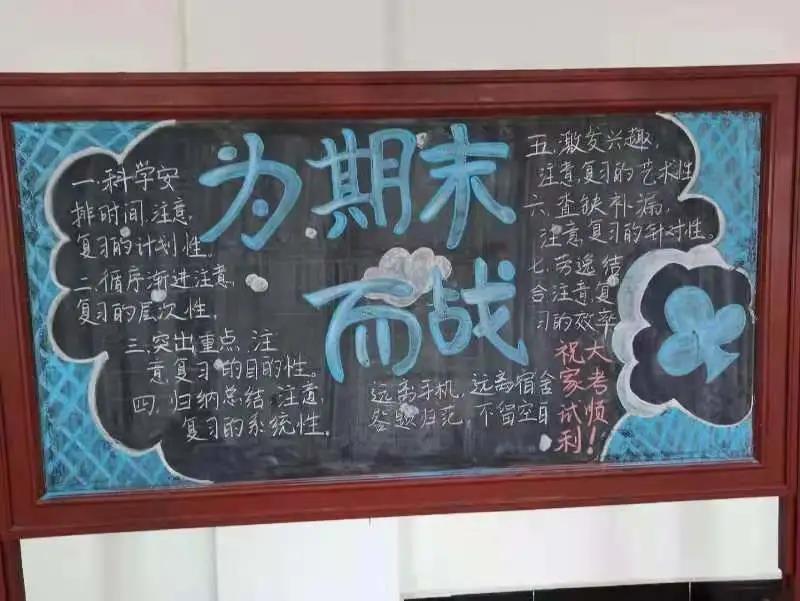 为期末
而战
一.科学安
排时间,注意,
复习的计划性。
二.循序渐进注意,
复习的层次性,
三.突出重点,注
意复习的目的性。
四.归纳总结,注意,
复习的系统性,
五.激发兴趣,
注意,复习的艺术性
六.查缺补漏,
注意,复习的针对性。
七.劳逸结
合注意复
习的效率
远离手机,远离宿舍
答题归范,不留空目
祝大
家考
试顺
利!